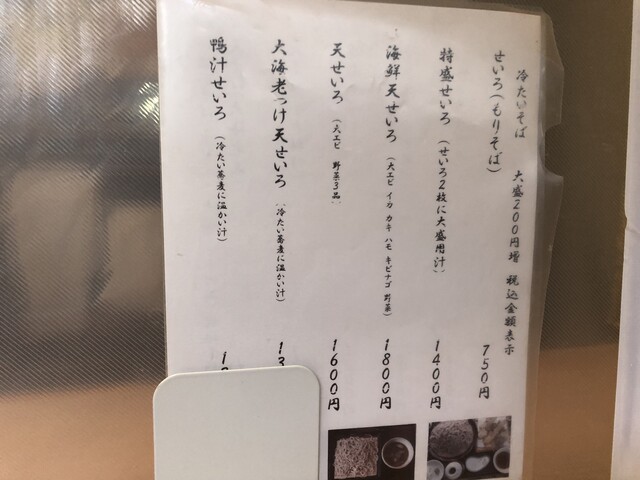 冷たいそば　大盛200円増　税込金額表示
せいろ(もりそば)　750円
特盛せいろ　(せいろ2枚に大盛用汁)　1400円
海鮮天せいろ　(大エビ イカ カキ ハモ キビナゴ 野菜)　1800円
天せいろ　(大エビ 野菜3品)　1600円
大海老つけ天せいろ　(冷たい蕎麦に温かい汁)
鴨汁せいろ　(冷たい蕎麦に温かい汁)